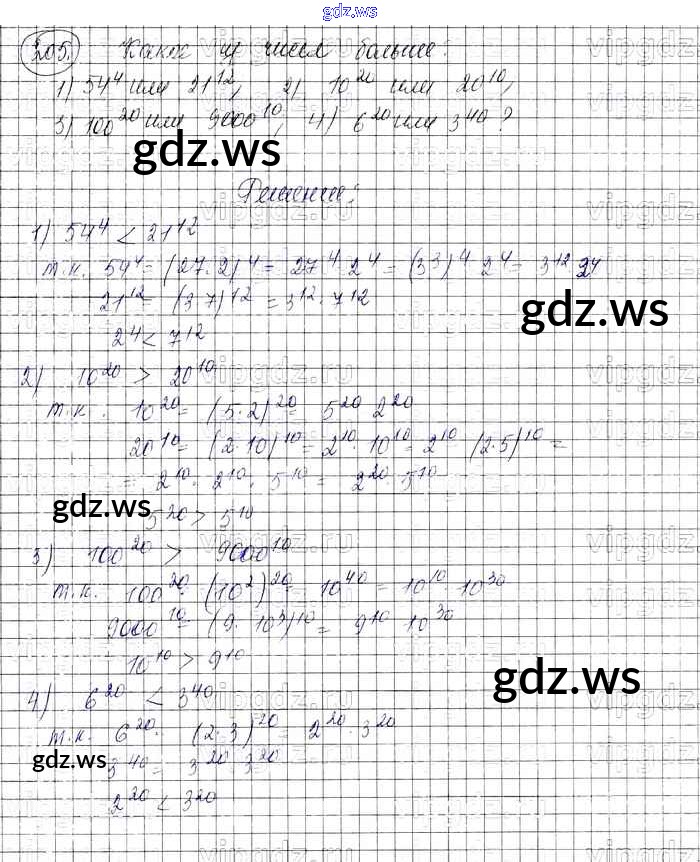 gdz.ws
205. Какое из чисел больше:
1) 54⁴ или 21¹², 2) 10²⁰ или 20¹⁰,
3) 100²⁰ или 9000¹⁰, 4) 6²⁰ или 3⁴⁰?
gdz.ws
Решение:
1) 54⁴ < 21¹²
т.к. 54⁴ = (27·2)⁴ = 27⁴·2⁴ = (3³)⁴ 2⁴ = 3¹² 2⁴
21¹² = (3·7)¹² = 3¹²·7¹²
gdz.ws
2⁴ < 7¹²
2) 10²⁰ > 20¹⁰
т.к. 10²⁰ = (5·2)²⁰ = 5²⁰ 2²⁰
20¹⁰ = (2·10)¹⁰ = 2¹⁰·10¹⁰ = 2¹⁰ (2·5)¹⁰ =
= 2¹⁰·2¹⁰·5¹⁰ = 2²⁰·5¹⁰
gdz.ws
5²⁰ > 5¹⁰
3) 100²⁰ > 9000¹⁰
т.к. 100²⁰ = (10²)²⁰ = 10⁴⁰ = 10¹⁰ 10³⁰
9000¹⁰ = (9·10³)¹⁰ = 9¹⁰ 10³⁰
10¹⁰ > 9¹⁰
gdz.ws
4) 6²⁰ < 3⁴⁰
т.к. 6²⁰ = (2·3)²⁰ = 2²⁰·3²⁰
gdz.ws
3⁴⁰ = 3²⁰ 3²⁰
2²⁰ < 3²⁰